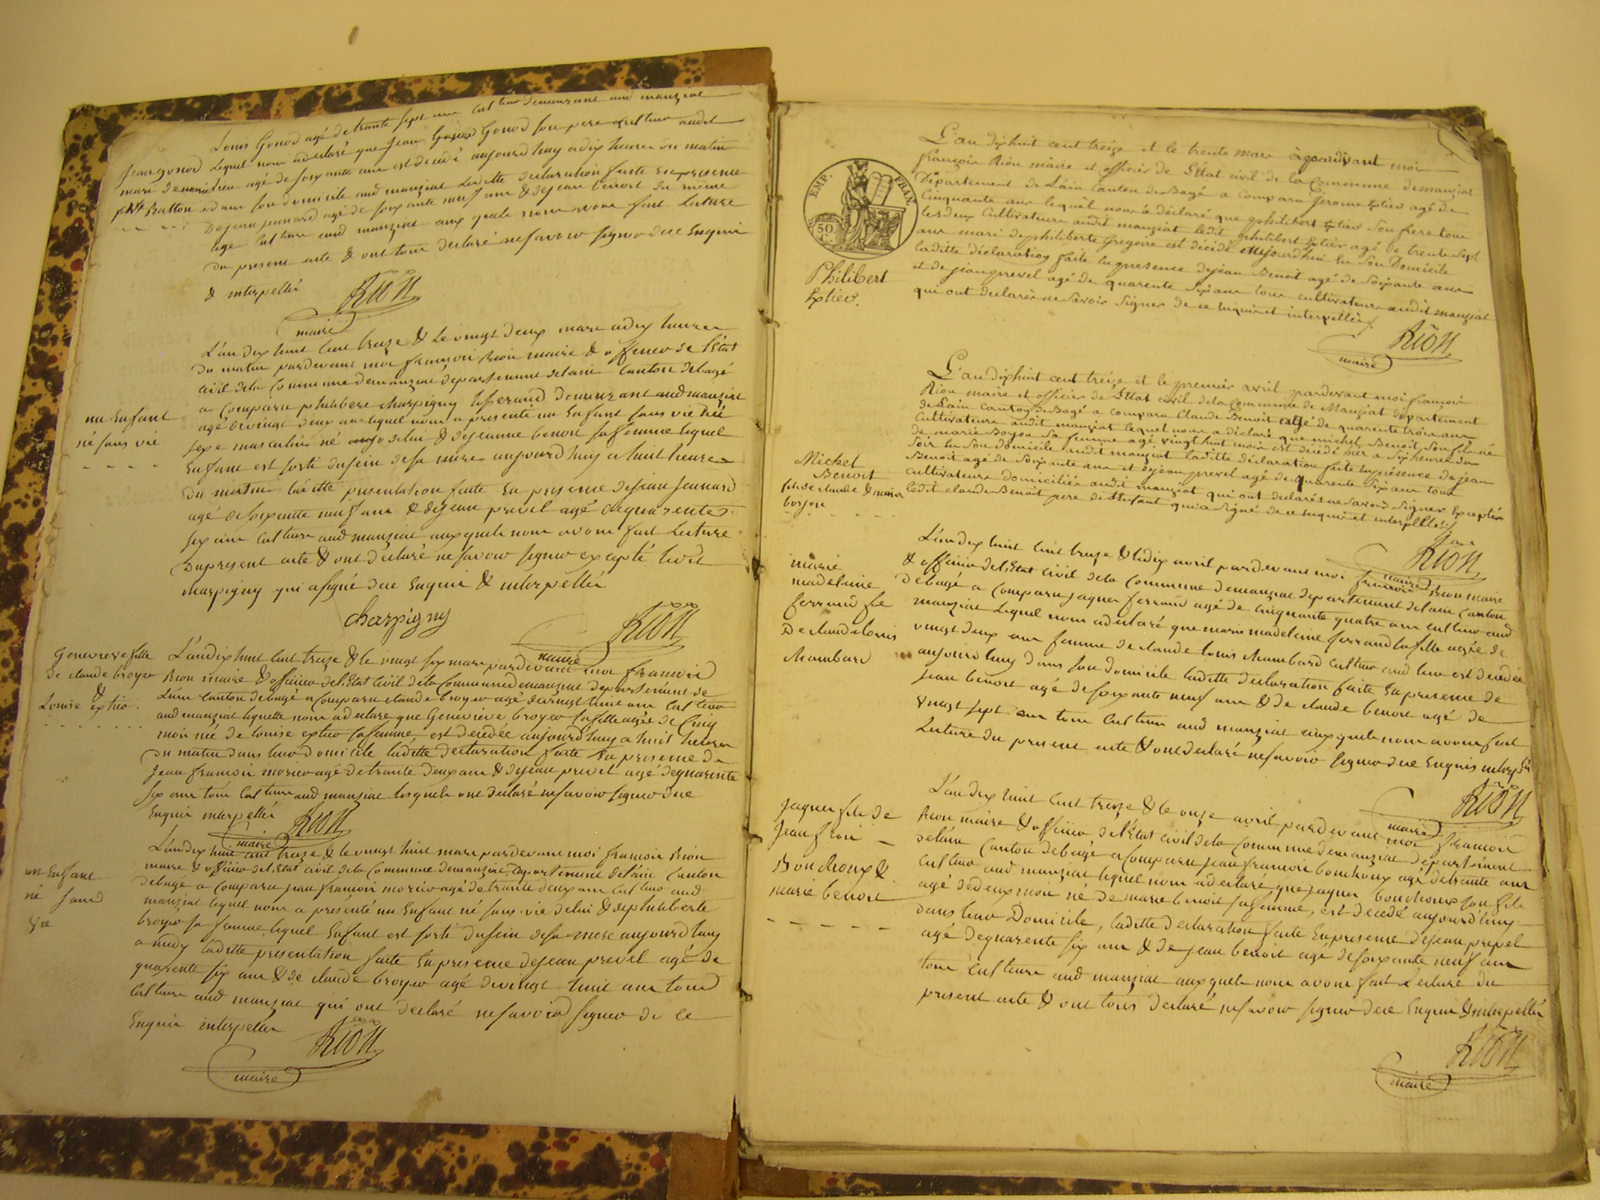 Louis Gonod agé de trante sept ans cultivateur demeurant aud manziat
Jean gonod lequel nous a declaré que Jean Gonod son pere cultiv audit
agé de soixante ans est decedé aujourdhuy a dix heures du matin
Batton dans son domicile aud manziat Laditte declaration faitte en presence
De jean Jennard agé de soixante neuf ans & de Jean benoit du meme
age Cultiv aud manziat aux quels nous avons fait Lecture
du present acte & ont tous declaré ne savoir signer de ce Enquis
& interpellé
Rion
maire
L'an dix huit Cent treize & le vingt deux mars a dix heures
du matin pardevant moi françois Rion maire & officier de l'Etat
civil de la Commune de manziat departement de lain Canton de bagé
a comparu philibert charpigny demeurant aud manziat
agé de vingt deux ans lequel nous a presenté un Enfant sans vie
nu Enfant
né sans vie
sexe masculin né de lui & de jeanne benoit sa femme lequel
Enfant est sorti du sein de sa mere aujourdhuy a huit heures
du matin laditte presentation faite En presence de Jean Jennard
agé de soixante neuf ans & de jean prevel agé de quarente
six ans Cultiv aud manziat aux quels nous avons fait Lecture
du present acte & ont declaré ne savoir signer excepté ledit
charpigny qui a signé de ce Enquis & interpellé
charpigny
Rion
maire
Genevieve fille
de claude broyer
&
Louise
L'an dix huit Cent treize & le vingt six mars pardevant moi françois
Rion maire & officier de l'Etat Civil de la Commune de manziat departement de
Lain Canton de bagé a comparu claude broyer agé de vingt huit ans Cultiv
aud manziat lequel nous a declaré que Genevieve broyer sa fille agée de Cinq
mois né de louise sa femme, est decedée aujourdhuy a huit heures
du matin dans leur domicile laditte declaration faite En presence de
Jean françois morier agé de trante deux ans & de jean prevel agé de quarente
six ans tous Cultiv aud manziat lesquels ont declaré ne savoir signer de ce
Enquis interpellé
Rion
maire
un Enfant
né sans
vie
L'an dix huit cent treize & le vingt huit mars pardevant moi françois Rion
maire & officier de l'Etat Civil de la Commune de manziat departement de lain Canton
de bagé a comparu jean françois morier agé de trante deux ans Cultiv aud
manziat lequel nous a presenté un Enfant né sans vie de lui & de philiberte
broyer sa femme lequel Enfant est sorti du sein de sa mere aujourdhuy
a midy laditte presentation faite En presence de jean prevel agé de
quarente six ans & de claude broyer agé de vingt huit ans tous
Cultiv aud manziat qui ont declaré ne savoir signer de ce
Enquis interpellé
Rion
maire
EMP. FRAN
50
C.
Philibert
L'an dixhuit cent treize et le trente mars pardevant moi
françois Rion maire et officier de l'Etat civil de la Commune de manziat
Département de Lain Canton de Bagé a Comparu Jerome agé de
Cinquante ans lequel nous a déclaré que philibert son frere tous
les deux Cultivateurs audit manziat ledit philibert agé de trente sept
ans mari de philiberte Gregoire est décédé aujourdhui En son Domicile
laditte déclaration faite En presence de jean Benoit agé de soixante ans
et de jean prevel agé de quarente six ans tous cultivateurs audit manziat
qui ont declarés ne savoir Signer de ce Enquis et interpellés
Rion
maire
Michel
Benoit
fils de claude & marie
boyon
L'an dixhuit cent treize et le premier avril pardevant moi françois
Rion maire et officier de l'Etat civil de la Commune de Manziat département
de Lain Canton de Bagé a comparu Claude Benoit agé de quarente trois ans
Cultivateur audit manziat lequel nous a déclaré que michel Benoit son fils né
de marie Boyon sa femme agé vingt huit mois est décédé hier a six heures du
soir En son domicile audit manziat laditte déclaration faite En présence de jean
Benoit agé de soixante ans et de jean prevel agé de quarente six ans tous
cultivateurs domiciliés audit manziat qui ont declarés ne savoir signer Excepté
ledit claude Benoit pere de lenfant qui a signé de ce enquis et interpellés
Rion
maire
marie
madelaine
ferrand fe
De claude louis
Mambard
L'an dix huit Cent treize & le dix avril pardevant moi françois Rion maire
& officier de l'Etat civil de la Commune de manziat departement de lain Canton
de bagé a comparu jaques ferrand agé de Cinquante quatre ans cultiv aud
manziat Lequel nous a declaré que marie madelaine ferrand sa fille agée de
vingt deux ans femme de claude louis Mambard Cultiv aud lieu est decedée
aujourdhuy dans son domicile laditte declaration faite En presence de
Jean benoit agé de soixante neuf ans & de claude benoit agé de
vingt sept ans tous Cultiv aud manziat aux quels nous avons fait
Lecture du present acte & ont declaré ne savoir signer de ce Enquis interpellé
Rion
maire
Jaques fils de
Jean froi
Bonchoux &
marie benoit
L'an dix huit Cent treize & le onze avril pardevant moi françois
Rion maire & officier de l'Etat civil de la Commune de manziat departement
de lain Canton de bagé a comparu jean françois bonchoux agé de trante ans
Cultiv aud manziat lequel nous a declaré que jaques bonchoux son fils
agé de deux mois né de marie benoit sa femme, est decedé aujourdhuy
dans leur Domicile, laditte declaration faite En presence de jean prevel
agé de quarente six ans & de jean benoit agé de soixante neuf ans
tous Cultiv aud manziat aux quels nous avons fait Lecture du
present acte & ont tous declaré ne savoir signer de ce Enquis & interpellé
Rion
maire